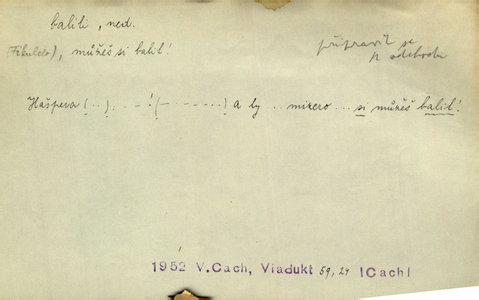 balili, ned.
(Fikulda), můžeš si balit!
připravit se
k odchodu
Hašpera (..)..--!(-------) a ty ... mizero ... si můžeš balit!
1952 V.Cach, Viadukt 59,24 |Cach|